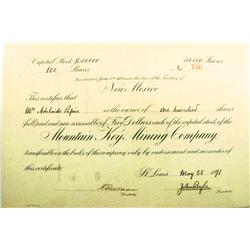 Capital Stock
Shares
100 Shares
No 716
New Mexico
This certifies that
Mrs Adelaide Papin is the owner of one hundred shares
full paid and non assessable of Five Dollars each of the capital stock of the
Mountain Key Mining Company,
transferable on the books of the company only by endorsement and surrender of
this certificate.
St Louis May 28 189
Secretary
President